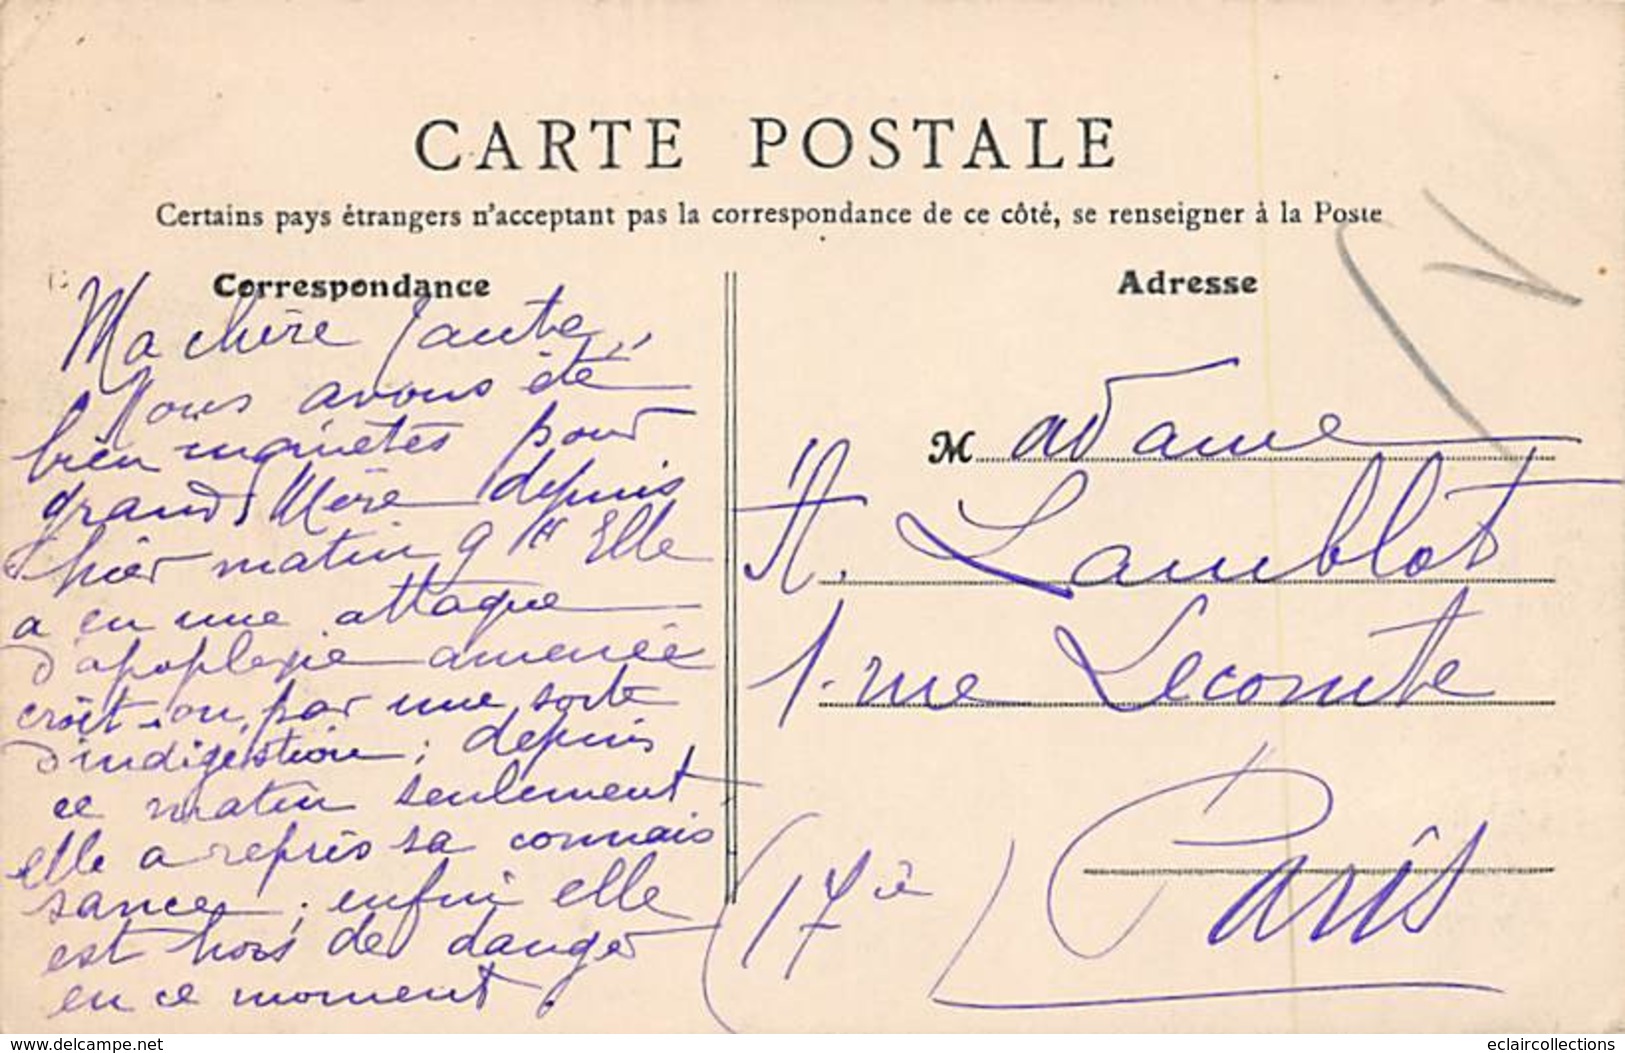 CARTE POSTALE
Certains pays étrangers n'acceptant pas la correspondance de ce côté, se renseigner à la Poste
Correspondance
Ma chère Tante,
Nous avons été
bien inquiètes pour
grand Mère depuis
hier matin 9 H Elle
a eu une attaque
d'apoplexie amenée
croit-on, par une sorte
d'indigestion ; depuis
ce matin seulement
elle a repris sa connais
sance ; enfin elle
est hors de danger
en ce moment.
Adresse
Madame
H. Lamblot
1 rue Lecomte
Paris
(17è
delcampe.net
eclaircollections